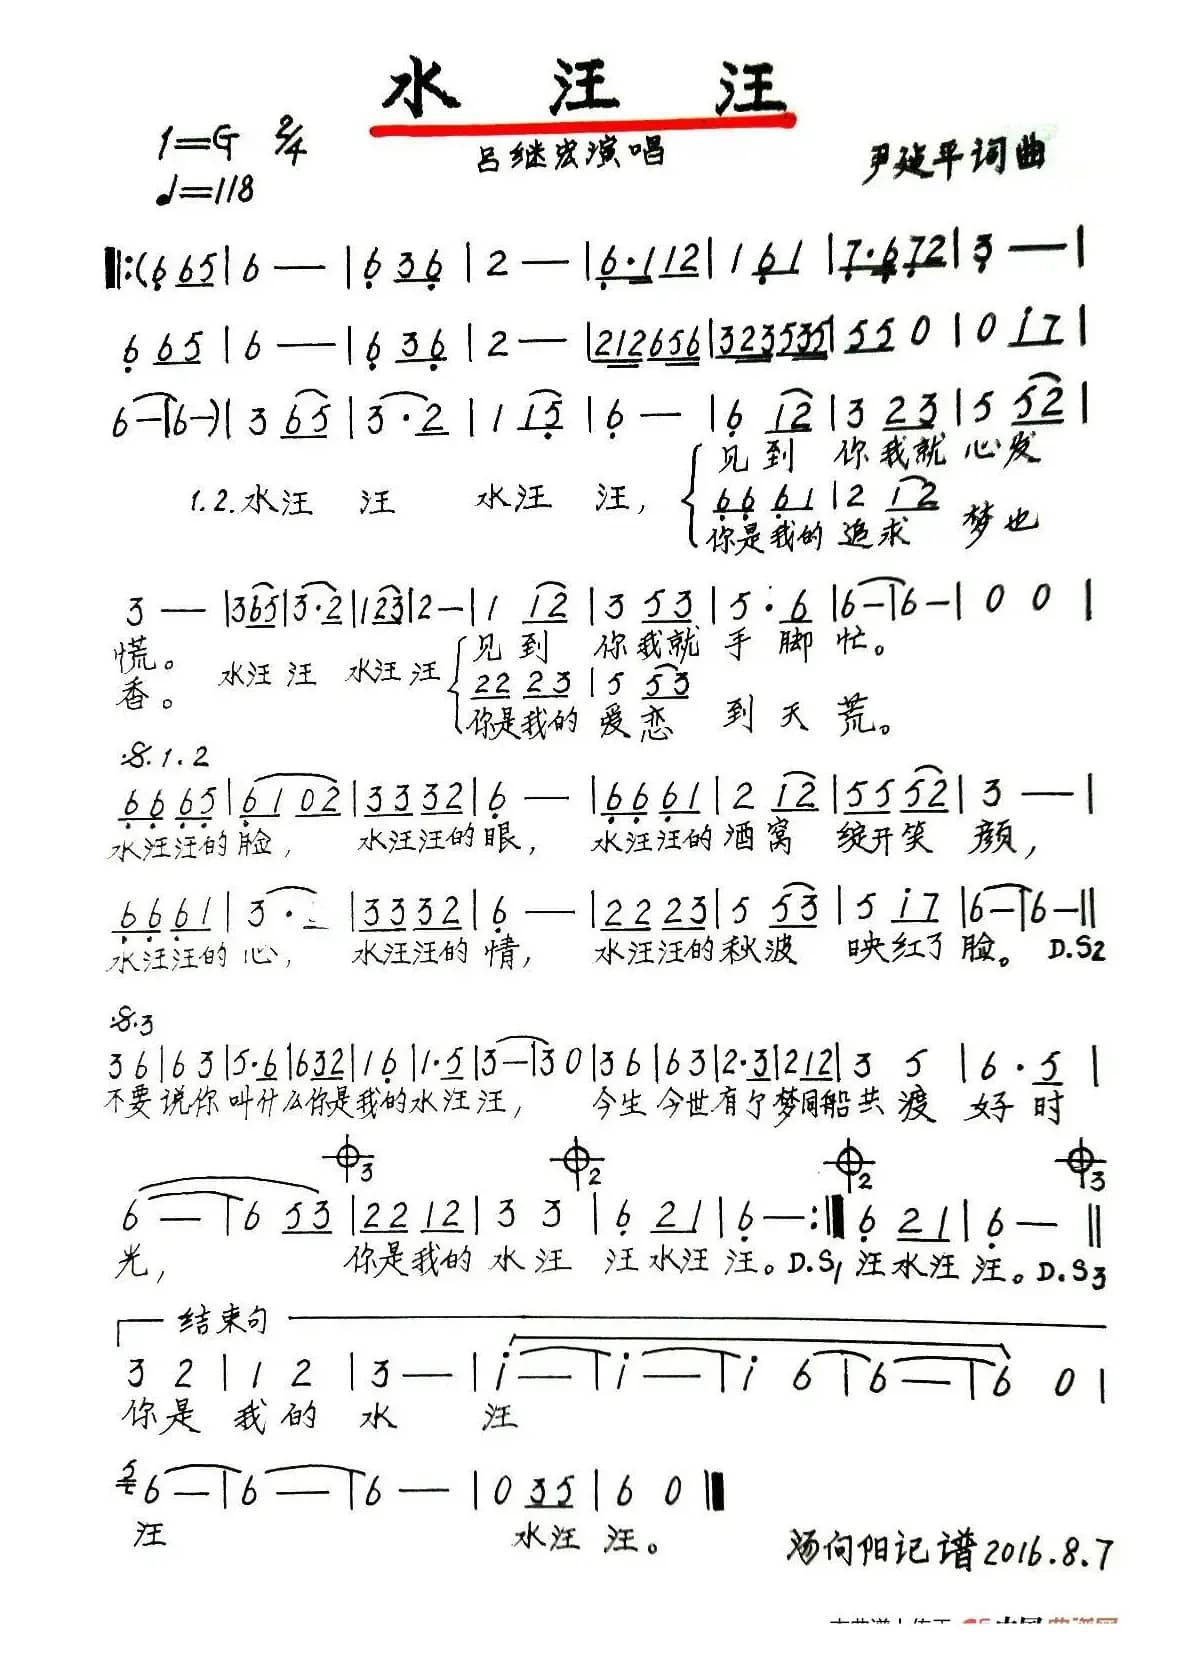 水 汪 汪
1=G 2/4 吕继宏演唱 尹延平词曲
♩=118
‖:(6 65|6 —|6 36|2 —|6·112|1 61|7·672|3 —|
6 65|6 —|6 36|2 —|212656|323535|55 0|0 i7|
6—|6—)|3 65|3·2|1 15|6 —|6 12|3 23|5 52|
见到 你我就 心发
1.2.水汪 汪 水汪 汪,
66 61|2 12
你是我的 追求 梦也
3 —|365|3·2|123|2—|1 12|3 53|5· 6|6—|6—|0 0|
慌。 水汪 汪 水汪 汪 见到 你我就 手 脚 忙。
香。
22 23|5 53
你是我的 爱恋 到 天 荒。
𝄋.1.2
66 65|61 02|33 32|6 —|66 61|2 12|55 52|3 —|
水汪汪的脸, 水汪汪的眼, 水汪汪的酒窝 绽开笑 颜,
66 61|3 ·2|33 32|6 —|22 23|5 53|5 i7|6—|6—‖
水汪汪的 心, 水汪汪的 情, 水汪汪的秋波 映红了 脸。 D.S2
𝄋.3
3 6|6 3|5·6|632|1 6|1·5|3—|3 0|3 6|6 3|2·3|212|3 5|6·5|
不要 说你 叫什么你是我的水汪 汪, 今生 今世有个梦同船共 渡 好 时
𝄌3 𝄌2 𝄌2 𝄌3
6 —|6 53|22 12|3 3|6 21|6—:‖6 21|6—‖
光, 你是我的 水 汪 汪水汪 汪。D.S1 汪水汪 汪。D.S3
结束句
3 2|1 2|3—|i—|i—|i 6|6—|6 0|
你是 我的 水 汪
6—|6—|6—|0 35|6 0‖
汪 水汪 汪。
汤向阳记谱2016.8.7